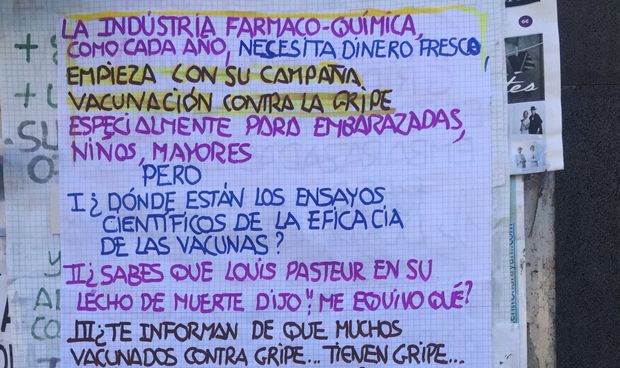 LA INDÚSTRIA FARMACO-QUÍMICA,
COMO CADA AÑO, NECESITA DINERO FRESCO,
EMPIEZA CON SU CAMPAÑA
VACUNACIÓN CONTRA LA GRIPE
ESPECIALMENTE PARA EMBARAZADAS,
NIÑOS, MAYORES
PERO
I ¿DÓNDE ESTÁN LOS ENSAYOS
CIENTÍFICOS DE LA EFICACIA
DE LAS VACUNAS?
II ¿SABES QUE LOUIS PASTEUR EN SU
LECHO DE MUERTE DIJO "ME EQUIVOQUÉ?
III ¿TE INFORMAN DE QUE MUCHOS
VACUNADOS CONTRA GRIPE... TIENEN GRIPE...